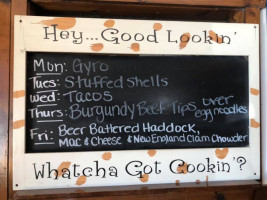 Hey...Good Lookin'
Mon: Gyro
Tues: Stuffed Shells
Wed: Tacos
Thurs: Burgundy Beef Tips over
egg noodles
Fri: Beer Battered Haddock,
Mac & Cheese & New England Clam Chowder
Whatcha Got Cookin'?